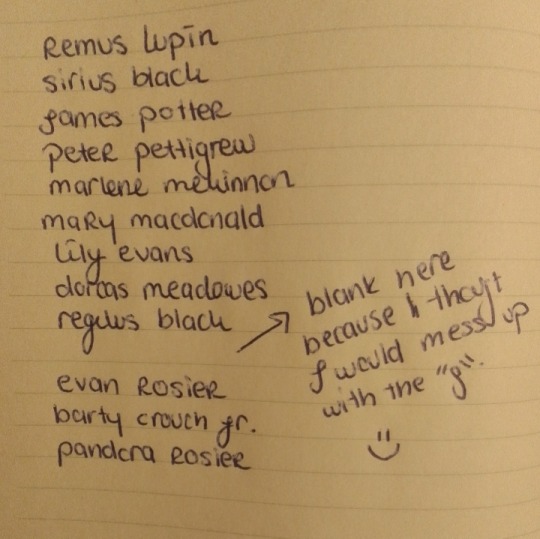 Remus lupin
sirius black
james potter
peter pettigrew
marlene mckinnon
mary macdonald
lily evans
dorcas meadowes
regulus black
evan Rosier
barty crouch jr.
pandora Rosier
blank here
because I thougt
I would mess up
with the "g".